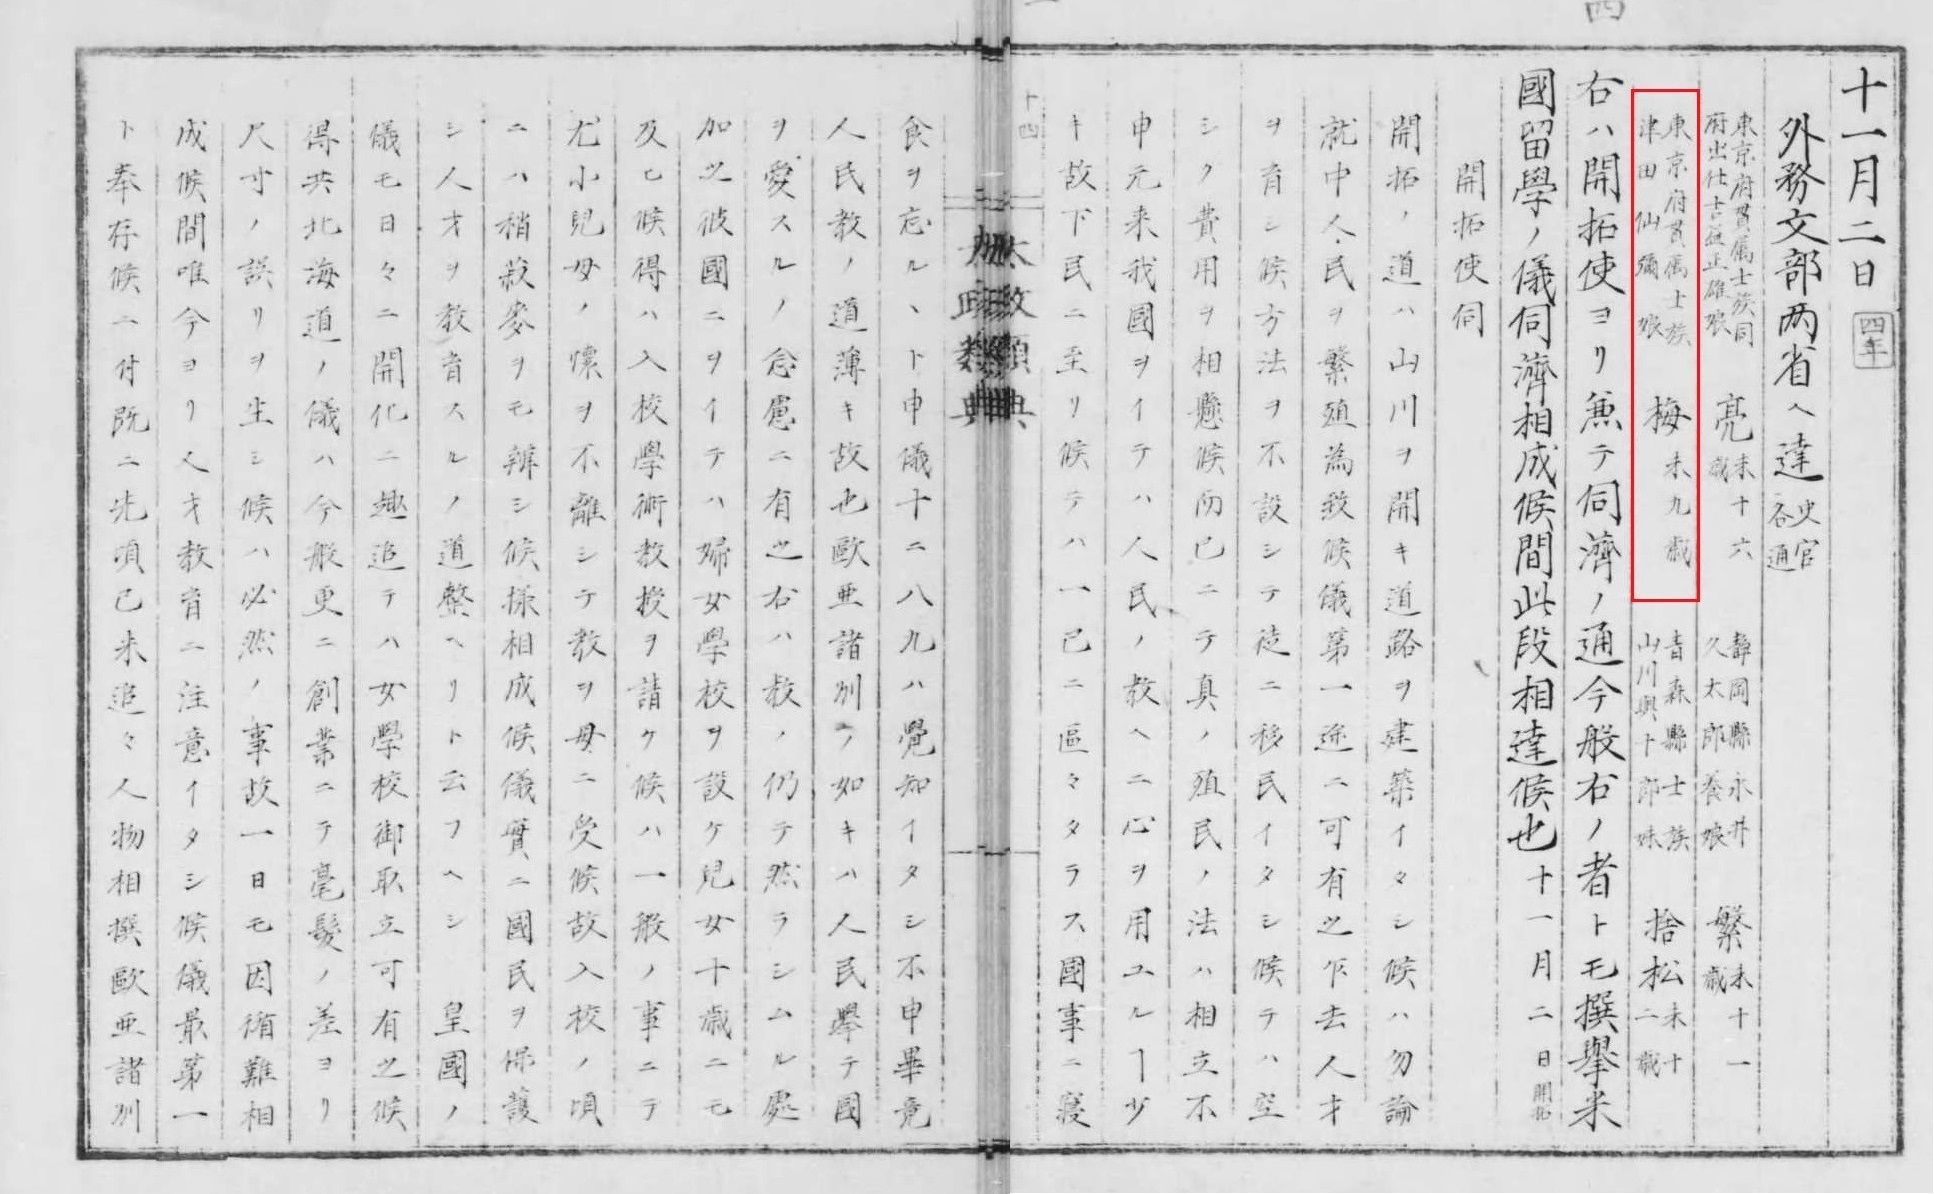 四
十一月二日 四年
外務文部両省ヘ達 史官各通
東京府貫属士族同府出仕吉益正雄娘 亮 未十六歳
静岡縣永井久太郎養娘 繁 未十一歳
東京府貫属士族津田仙彌娘 梅 未九歳
青森縣士族山川與十郎妹 捨松 未十二歳
右ハ開拓使ヨリ兼テ伺濟ノ通今般右ノ者トモ撰擧米
國留學ノ儀伺濟相成候間此段相達候也 十一月二日 開拓
開拓使伺
開拓ノ道ハ山川ヲ開キ道路ヲ建築イタシ候ハ勿論
就中人民ヲ繁殖為致候儀第一途ニ可有之乍去人才
ヲ育シ候方法ヲ不設シテ徒ニ移民イタシ候テハ空
シク費用ヲ相懸候而已ニテ真ノ殖民ノ法ハ相立不
申元来我國ヲイテハ人民ノ教ヘニ心ヲ用ユルヿ少
キ故下民ニ至リ候テハ一己ニ區々タラス國事ニ寝
十四
太政類典
食ヲ忘ルヽト申儀十ニ八九ハ覺知イタシ不申畢竟
人民教ノ道薄キ故也歐亜諸州ノ如キハ人民擧テ國
ヲ愛スルノ念慮ニ有之右ハ教ノ仍テ然ラシムル處
加之彼國ニヲイテハ婦女學校ヲ設ケ兒女十歳ニモ
及ヒ候得ハ入校學術教授ヲ請ケ候ハ一般ノ事ニテ
尤小兒母ノ懐ヲ不離シテ教ヲ母ニ受候故入校ノ頃
ニハ稍菽麥ヲモ辨シ候様相成候儀實ニ國民ヲ保護
シ人才ヲ教育スルノ道整ヘリト云フヘシ 皇國ノ
儀モ日々ニ開化ニ趣追テハ女學校御取立可有之候
得共北海道ノ儀ハ今般更ニ創業ニテ毫髪ノ差ヨリ
尺寸ノ誤リヲ生シ候ハ必然ノ事故一日モ因循難相
成候間唯今ヨリ人才教育ニ注意イタシ候儀最第一
ト奉存候ニ付既ニ先頃已来追々人物相撰歐亜諸州